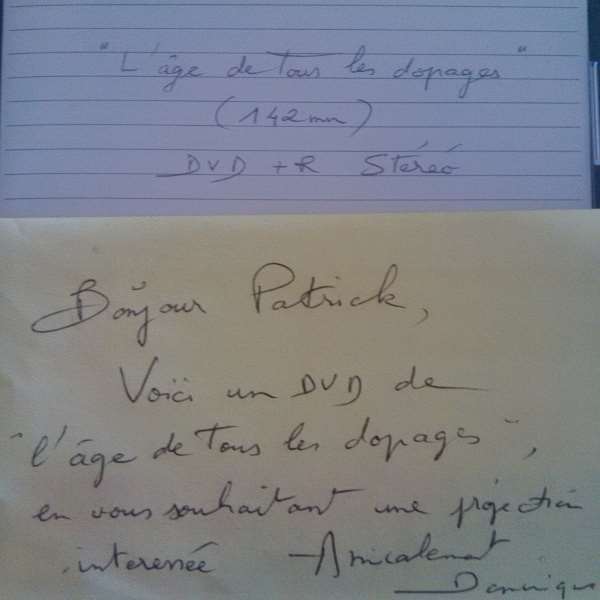 "L'âge de tous les dopages"
(142mn)
DVD +R Stéréo
Bonjour Patrick,
Voici un DVD de
"l'âge de tous les dopages",
en vous souhaitant une projection
interessée Amicalement
Dominique